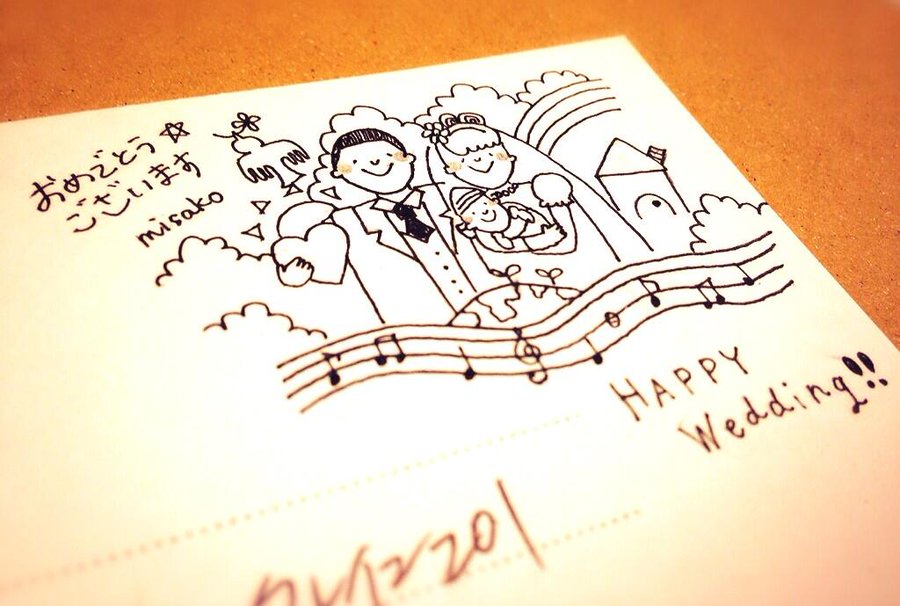 おめでとう☆
ございます
misako
HAPPY
Wedding!!